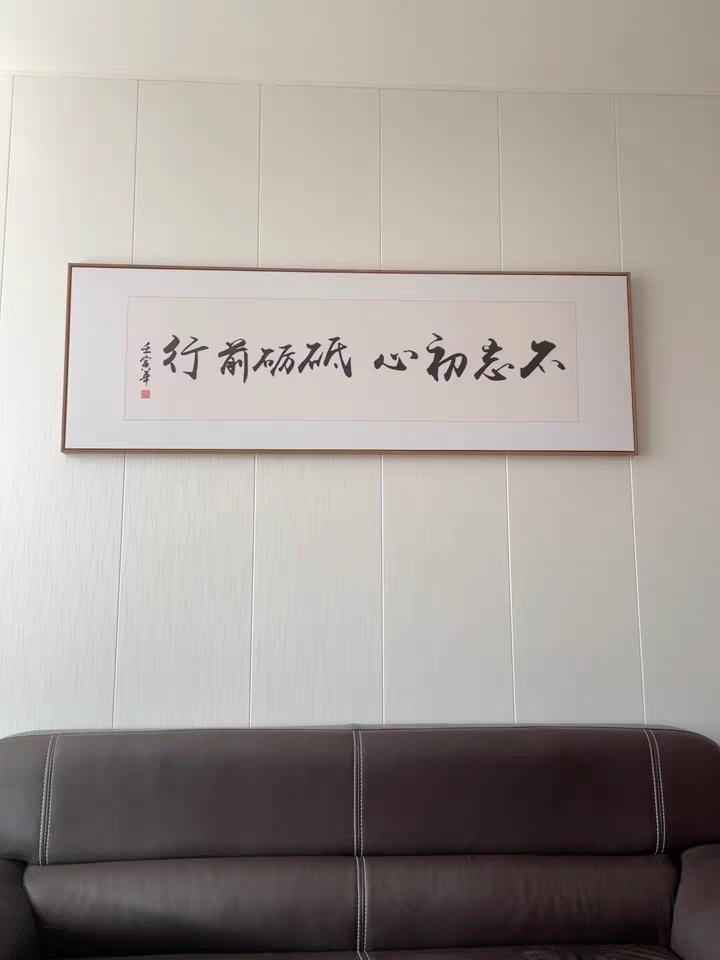 不忘初心 砥砺前行
壬寅華